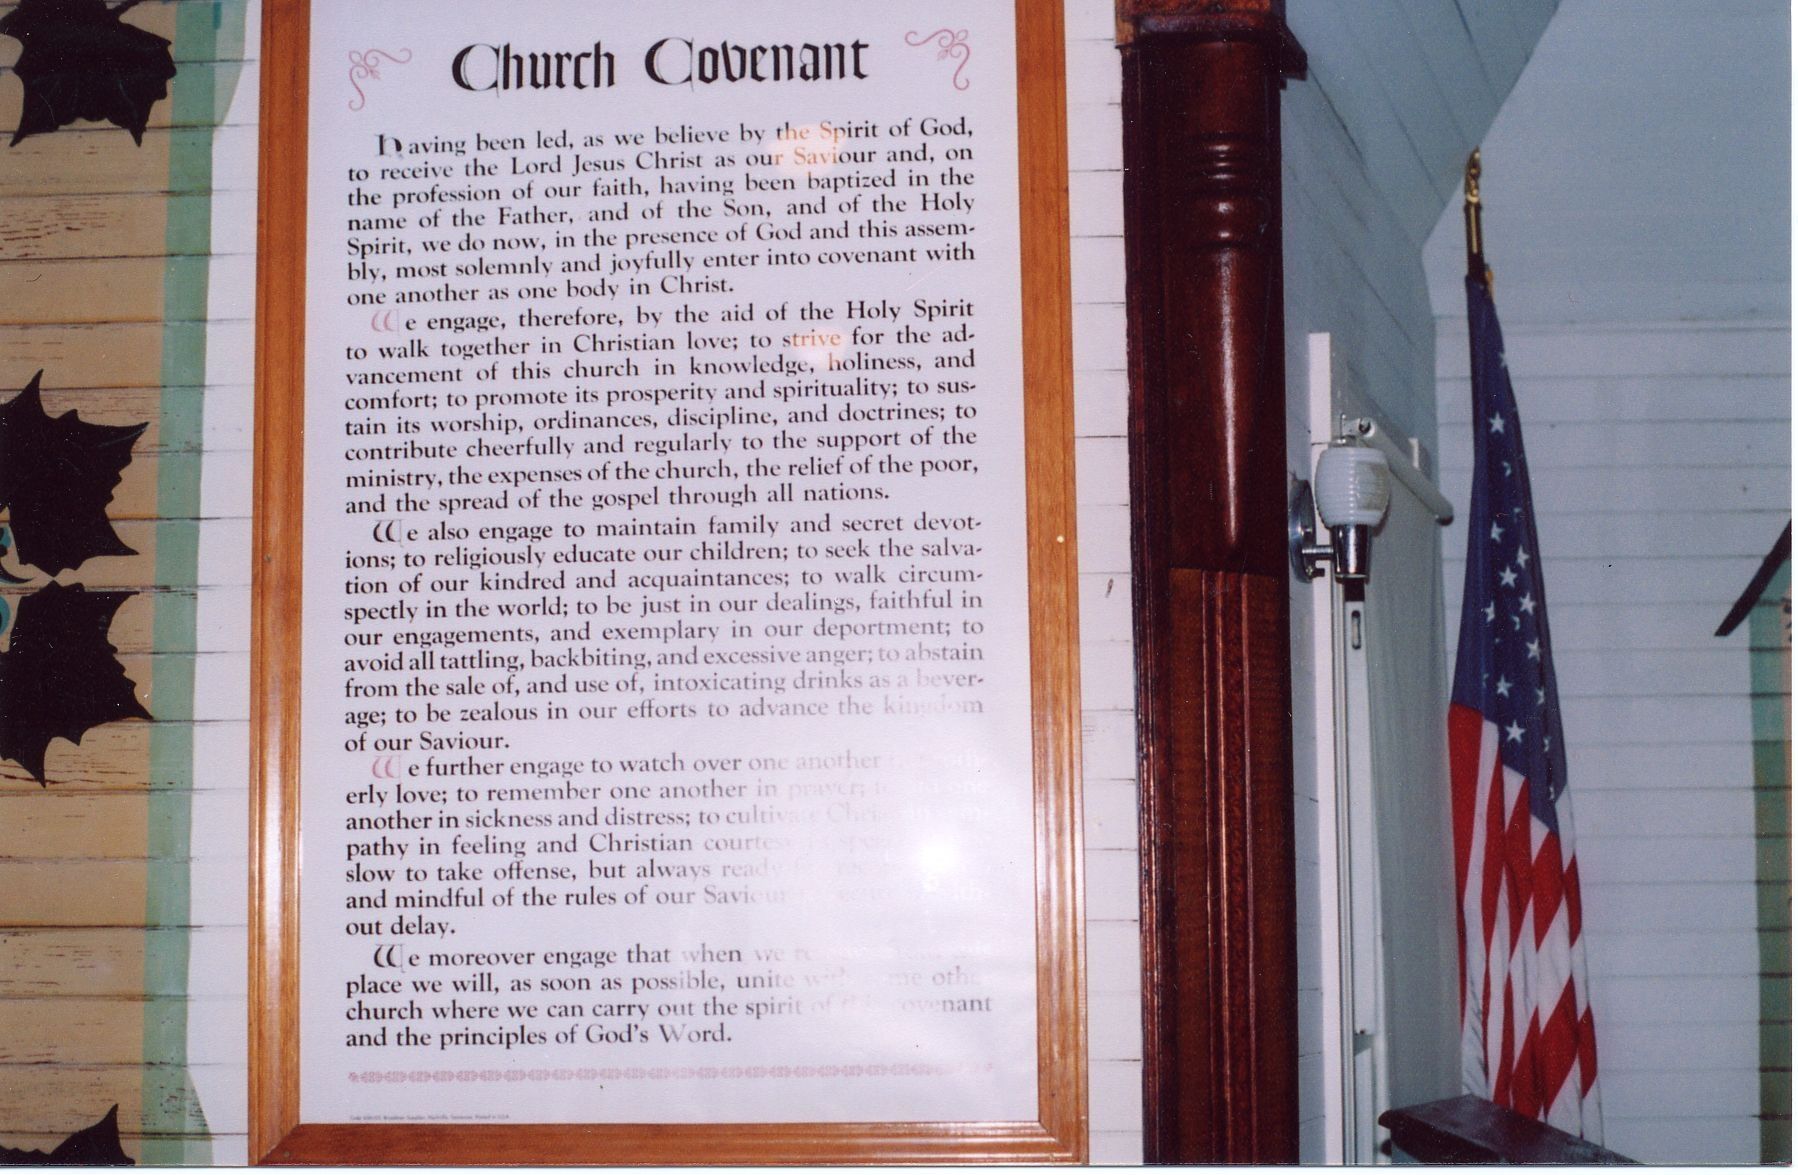 Church Covenant
Having been led, as we believe by the Spirit of God,
to receive the Lord Jesus Christ as our Saviour and, on
the profession of our faith, having been baptized in the
name of the Father, and of the Son, and of the Holy
Spirit, we do now, in the presence of God and this assem-
bly, most solemnly and joyfully enter into covenant with
one another as one body in Christ.
We engage, therefore, by the aid of the Holy Spirit
to walk together in Christian love; to strive for the ad-
vancement of this church in knowledge, holiness, and
comfort; to promote its prosperity and spirituality; to sus-
tain its worship, ordinances, discipline, and doctrines; to
contribute cheerfully and regularly to the support of the
ministry, the expenses of the church, the relief of the poor,
and the spread of the gospel through all nations.
We also engage to maintain family and secret devot-
ions; to religiously educate our children; to seek the salva-
tion of our kindred and acquaintances; to walk circum-
spectly in the world; to be just in our dealings, faithful in
our engagements, and exemplary in our deportment; to
avoid all tattling, backbiting, and excessive anger; to abstain
from the sale of, and use of, intoxicating drinks as a bever-
age; to be zealous in our efforts to advance the kingdom
of our Saviour.
We further engage to watch over one another
erly love; to remember one another in prayer;
another in sickness and distress; to cultivate
pathy in feeling and Christian
slow to take offense, but always ready
and mindful of the rules of our Saviour
out delay.
We moreover engage that when we
place we will, as soon as possible, unite with
church where we can carry out the spirit of this covenant
and the principles of God's Word.